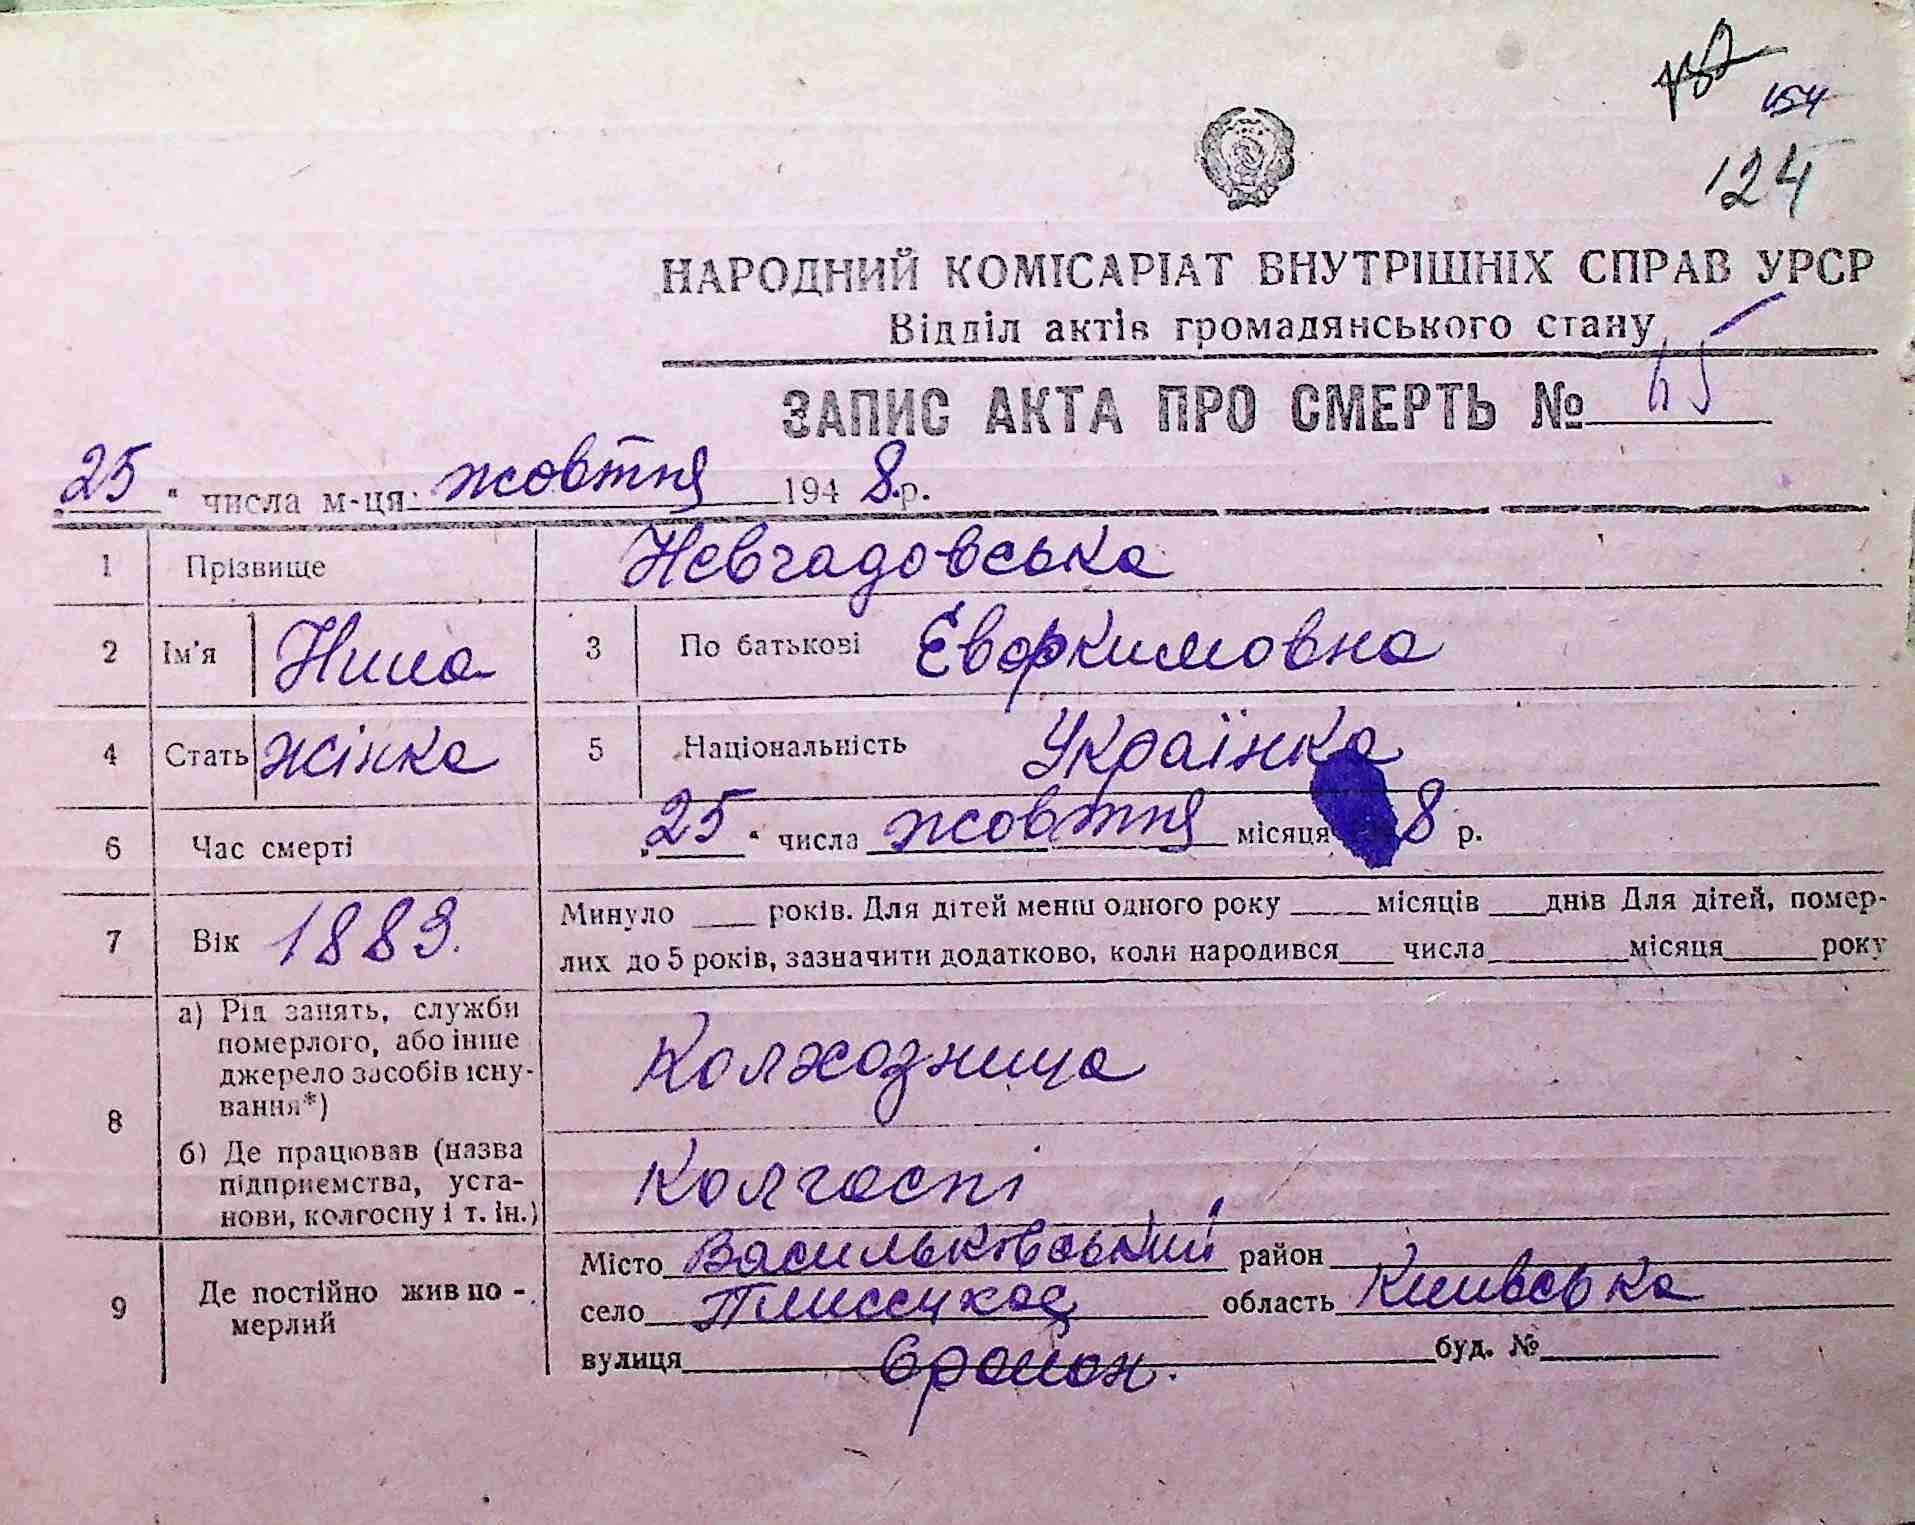 154
124
НАРОДНИЙ КОМІСАРІАТ ВНУТРІШНІХ СПРАВ УРСР
Відділ актів громадянського стану
ЗАПИС АКТА ПРО СМЕРТЬ № 45
25 " числа м-ця жовтня 1948 р.
1 Прізвище Невгадовська
2 Ім'я Нина 3 По батькові Евфкимовна
4 Стать жінка 5 Національність Українка
6 Час смерті „25" числа жовтня місяця 8 р.
7 Вік 1883. Минуло ___ років. Для дітей менш одного року ___ місяців ___ днів Для дітей, помер-
лих до 5 років, зазначити додатково, коли народився ___ числа ___ місяця ___ року
8 а) Рід занять, служби
померлого, або інше
джерело засобів існу-
вання*) Колхозница
б) Де працював (назва
підприємства, уста-
нови, колгоспу і т. ін.) Колгоспі
9 Де постійно жив по-
мерлий
Місто Васильковський район
село Плисецкое область Киивська
вулиця буд. №